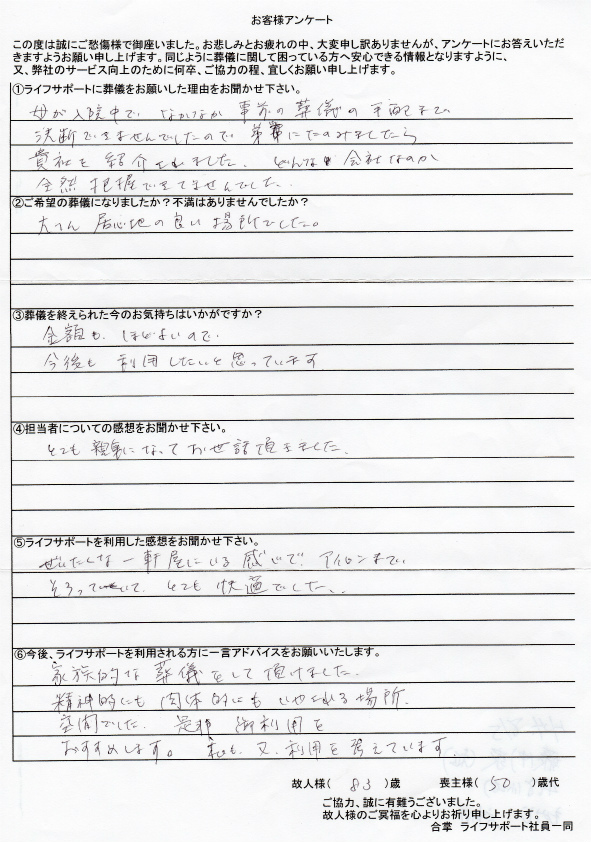 お客様アンケート
この度は誠にご愁傷様で御座いました。お悲しみとお疲れの中、大変申し訳ありませんが、アンケートにお答えいただ
きますようお願い申し上げます。同じように葬儀に関して困っている方へ安心できる情報となりますように、
又、弊社のサービス向上のために何卒、ご協力の程、宜しくお願い申し上げます。
①ライフサポートに葬儀をお願いした理由をお聞かせ下さい。
母が入院中で、なかなか事前の葬儀の手配までの
決断できませんでしたので にたのみましたら
貴社を紹介されました。どんな 会社なのか
全然把握できてませんでした。
②ご希望の葬儀になりましたか？不満はありませんでしたか？
大へん居心地の良い場所でした。
③葬儀を終えられた今のお気持ちはいかがですか？
金額も、ほどよいので、
今後も利用したいと思っています
④担当者についての感想をお聞かせ下さい。
とても親身になってお世話頂きました。
⑤ライフサポートを利用した感想をお聞かせ下さい。
ぜいたくな一軒屋にいる感じで、アイロンまで、
そろっていて、とても快適でした、、
⑥今後、ライフサポートを利用される方に一言アドバイスをお願いいたします。
家族的な葬儀をして頂けました。
精神的にも肉体的にもいやされる場所、
空間でした。是非御利用を
おすすめします。私も、又、利用を考えています
故人様（ 83 ）歳 喪主様（ 50 ）歳代
ご協力、誠に有難うございました。
故人様のご冥福を心よりお祈り申し上げます。
合掌 ライフサポート社員一同